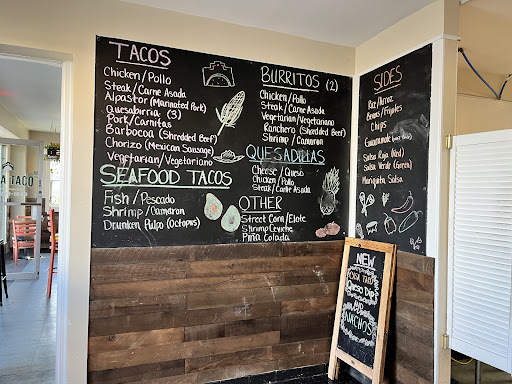 TACOS
Chicken/Pollo
Steak/Carne Asada
Alpastor (Marinated Pork)
Quesabirria (3)
Pork/Carnitas
Barbocoa (Shredded Beef)
Chorizo (Mexican Sausage)
Vegetarian/Vegetariano
SEAFOOD TACOS
Fish/Pescado
Shrimp/Camaron
Drunken Pulpo (Octopus)
BURRITOS (2)
Chicken/Pollo
Steak/Carne Asada
Vegetarian/Vegetariano
Ranchero (Shredded Beef)
Shrimp/Camaron
QUESADILLAS
Cheese/Queso
Chicken/Pollo
Steak/Carne Asada
OTHER
Street Corn/Elote
Shrimp Ceviche
Piña Colada
SIDES
Rice/Arroz
Beans/Frijoles
Chips
Guacamole
Salsa Roja (Red)
Salsa Verde (Green)
Mariquita Salsa
NEW
Queso Dip
AND
NACHOS
TACO